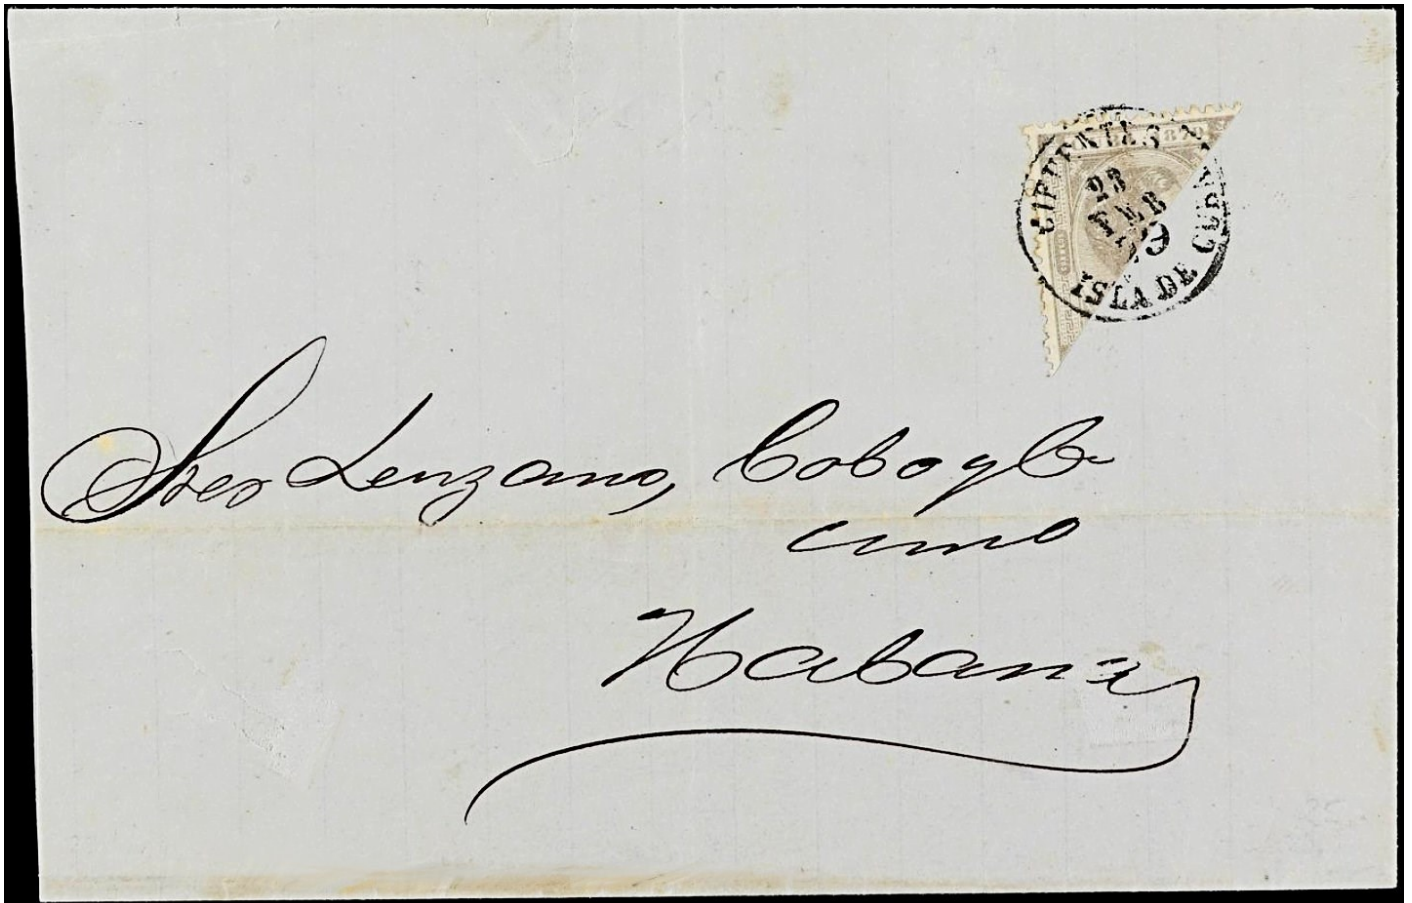 CIFUENTES
1879
23
FEB
79
ISLA DE CUBA
Sres Lenzano, Cobo y Ca
Habana